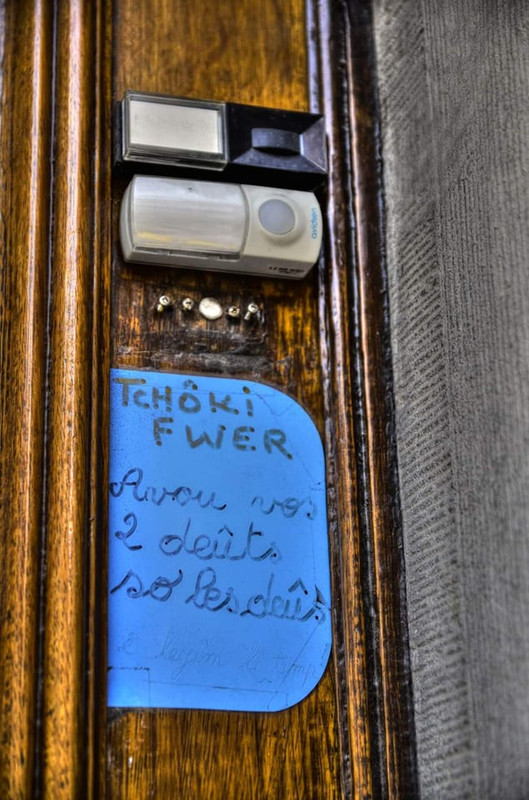 avidsen
TCHÔKÎ
FWER
Avou vos
2 deûts
so les deûs